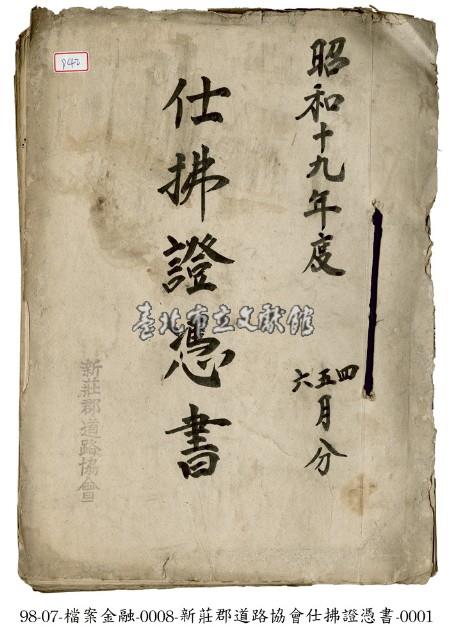 940
昭和十九年度
四五六月分
仕拂證憑書
新莊郡道路協會
臺北市立文獻館
98-07-檔案金融-0008-新莊郡道路協會仕拂證憑書-0001